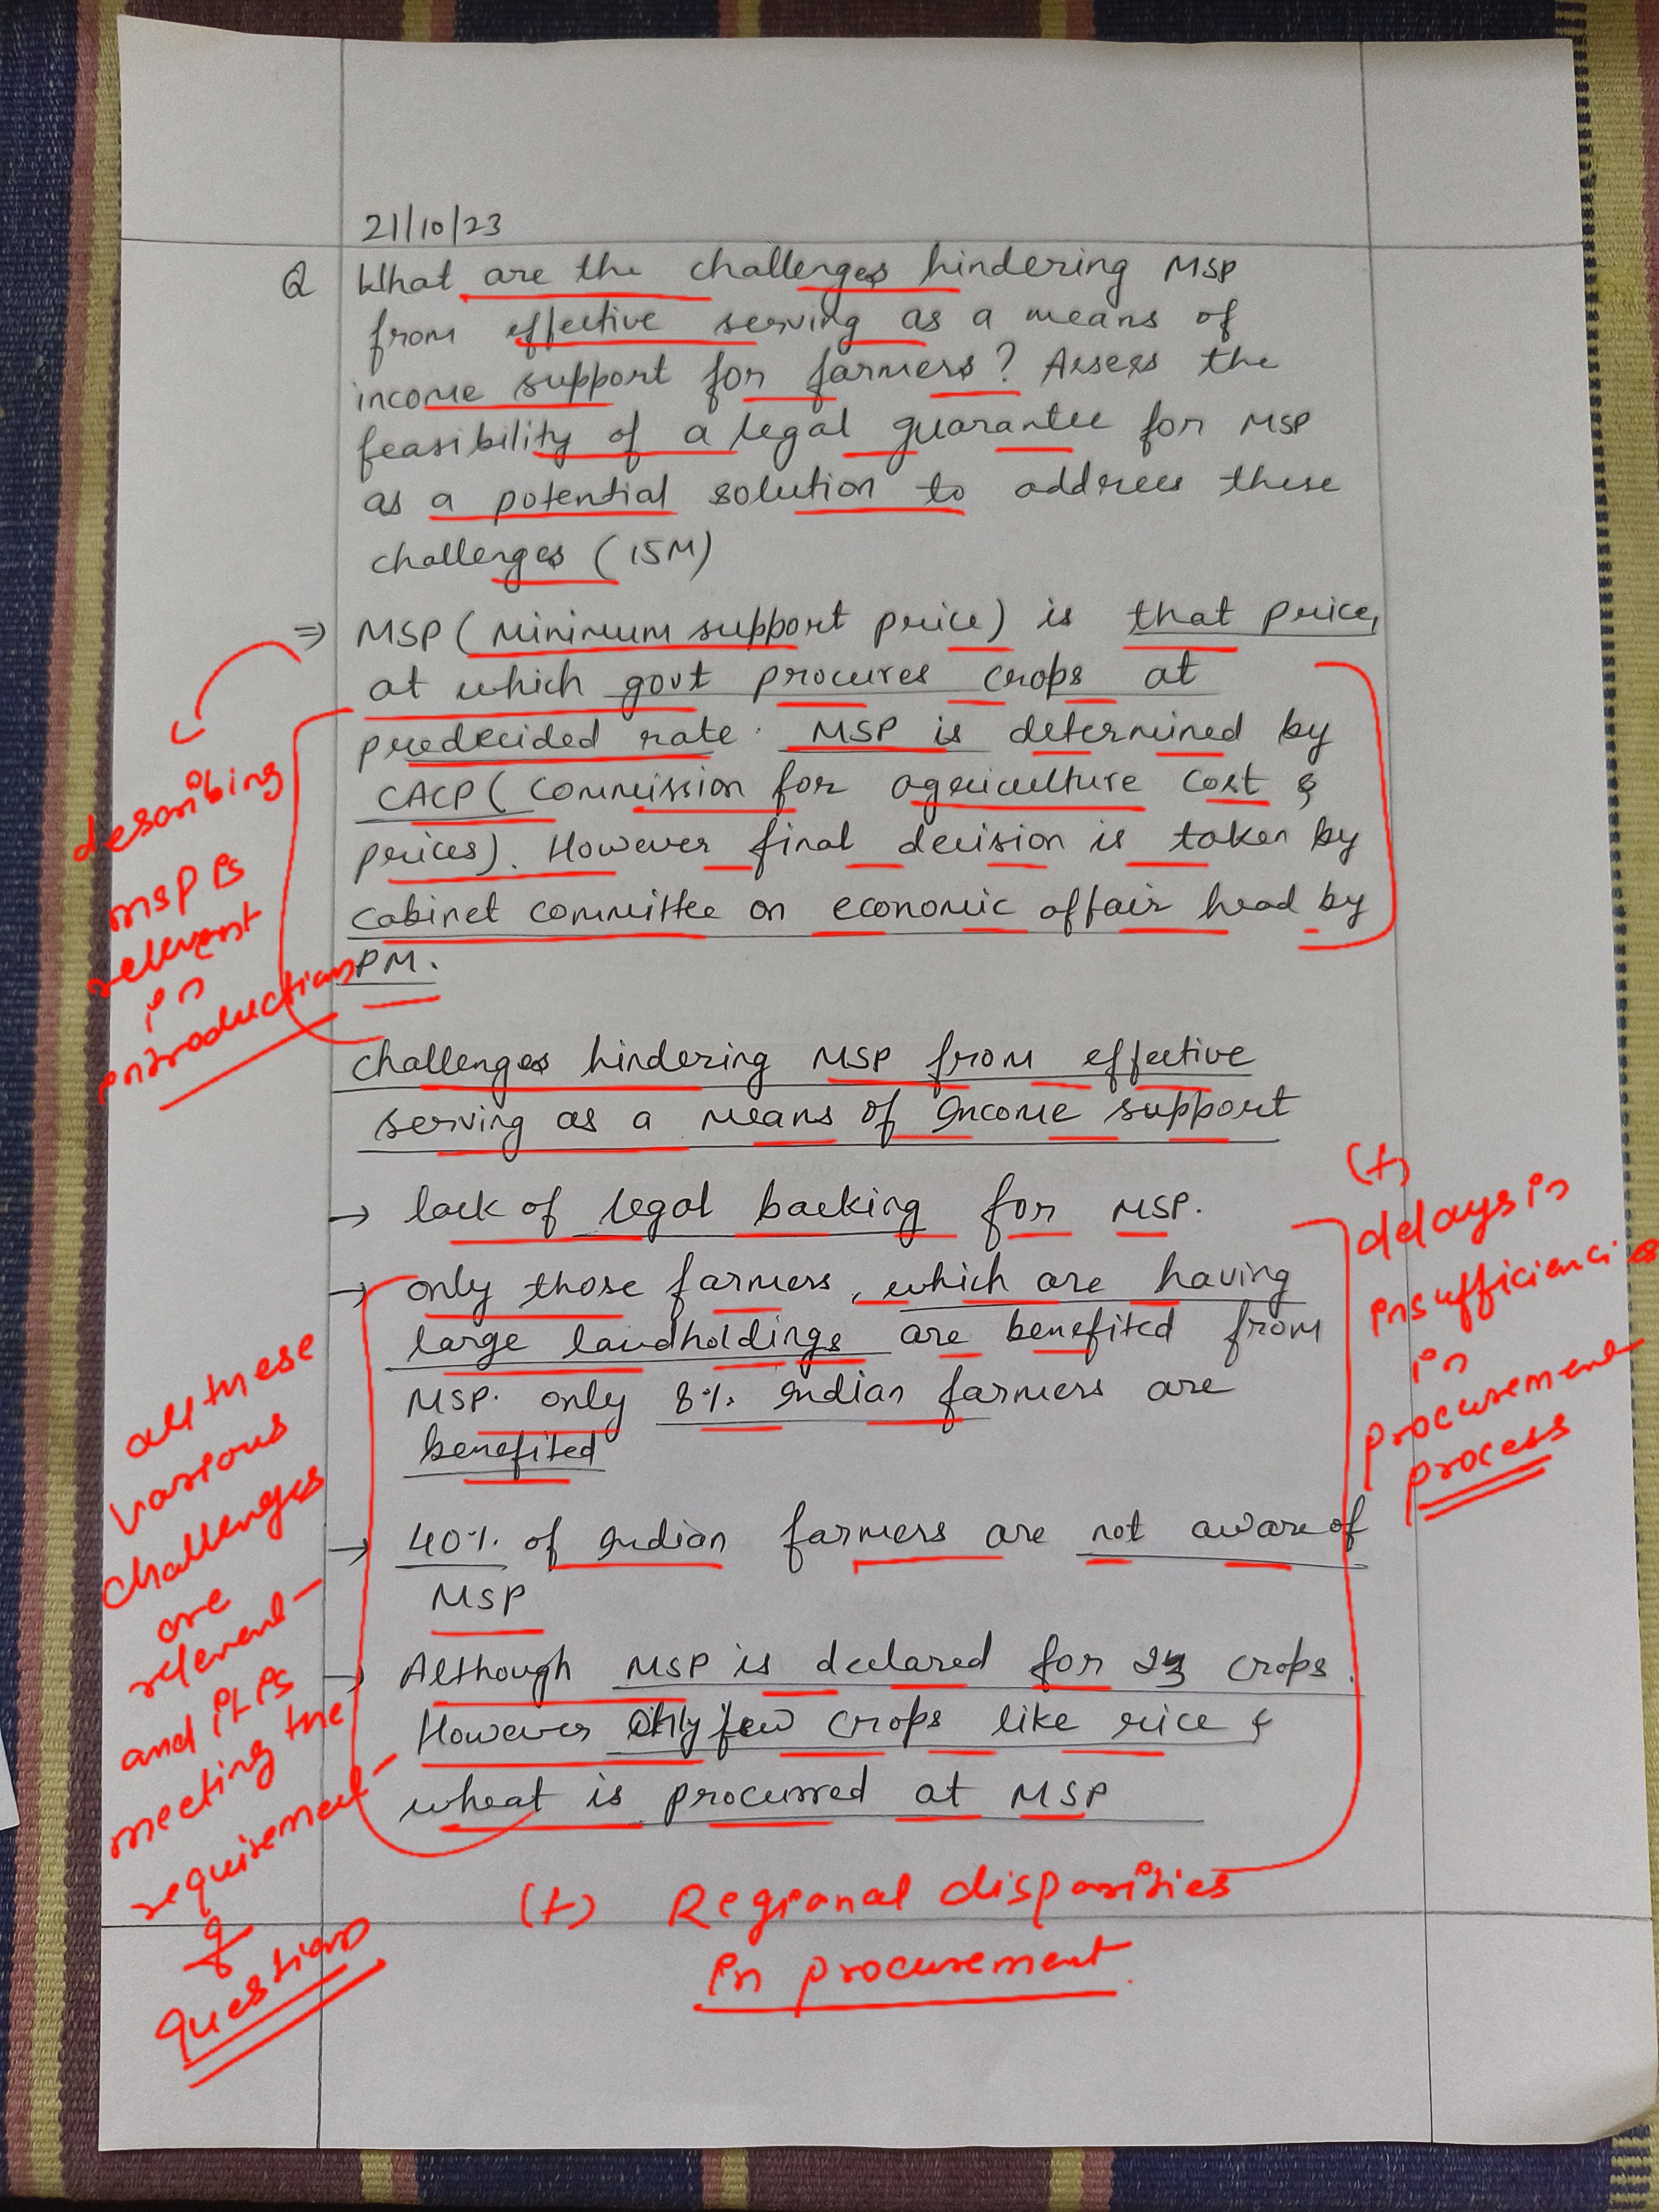 21/10/23
Q What are the challenges hindering MSP
from effective serving as a means of
income support for farmers? Assess the
feasibility of a legal guarantee for MSP
as a potential solution to address these
challenges (15M)
⇒ MSP (Minimum support price) is that price,
at which govt procures crops at
predecided rate. MSP is determined by
CACP (Commission for agriculture cost &
prices). However final decision is taken by
cabinet committee on economic affair head by
PM.
describing
msp is
relevant
in
introduction
challenges hindering MSP from effective
serving as a means of Income support
→ lack of legal backing for MSP.
→ only those farmers, which are having
large landholdings are benefited from
MSP. only 8% Indian farmers are
benefited
→ 40% of Indian farmers are not aware of
MSP
→ Although MSP is declared for 23 crops.
However only few crops like rice &
wheat is procurred at MSP
(+)
delays in
insufficiencies
in
procurement
process
all these
various
challenges
are
relevent
and it is
meeting the
requirement
of
question
(+) Regional disparities
in procurement.